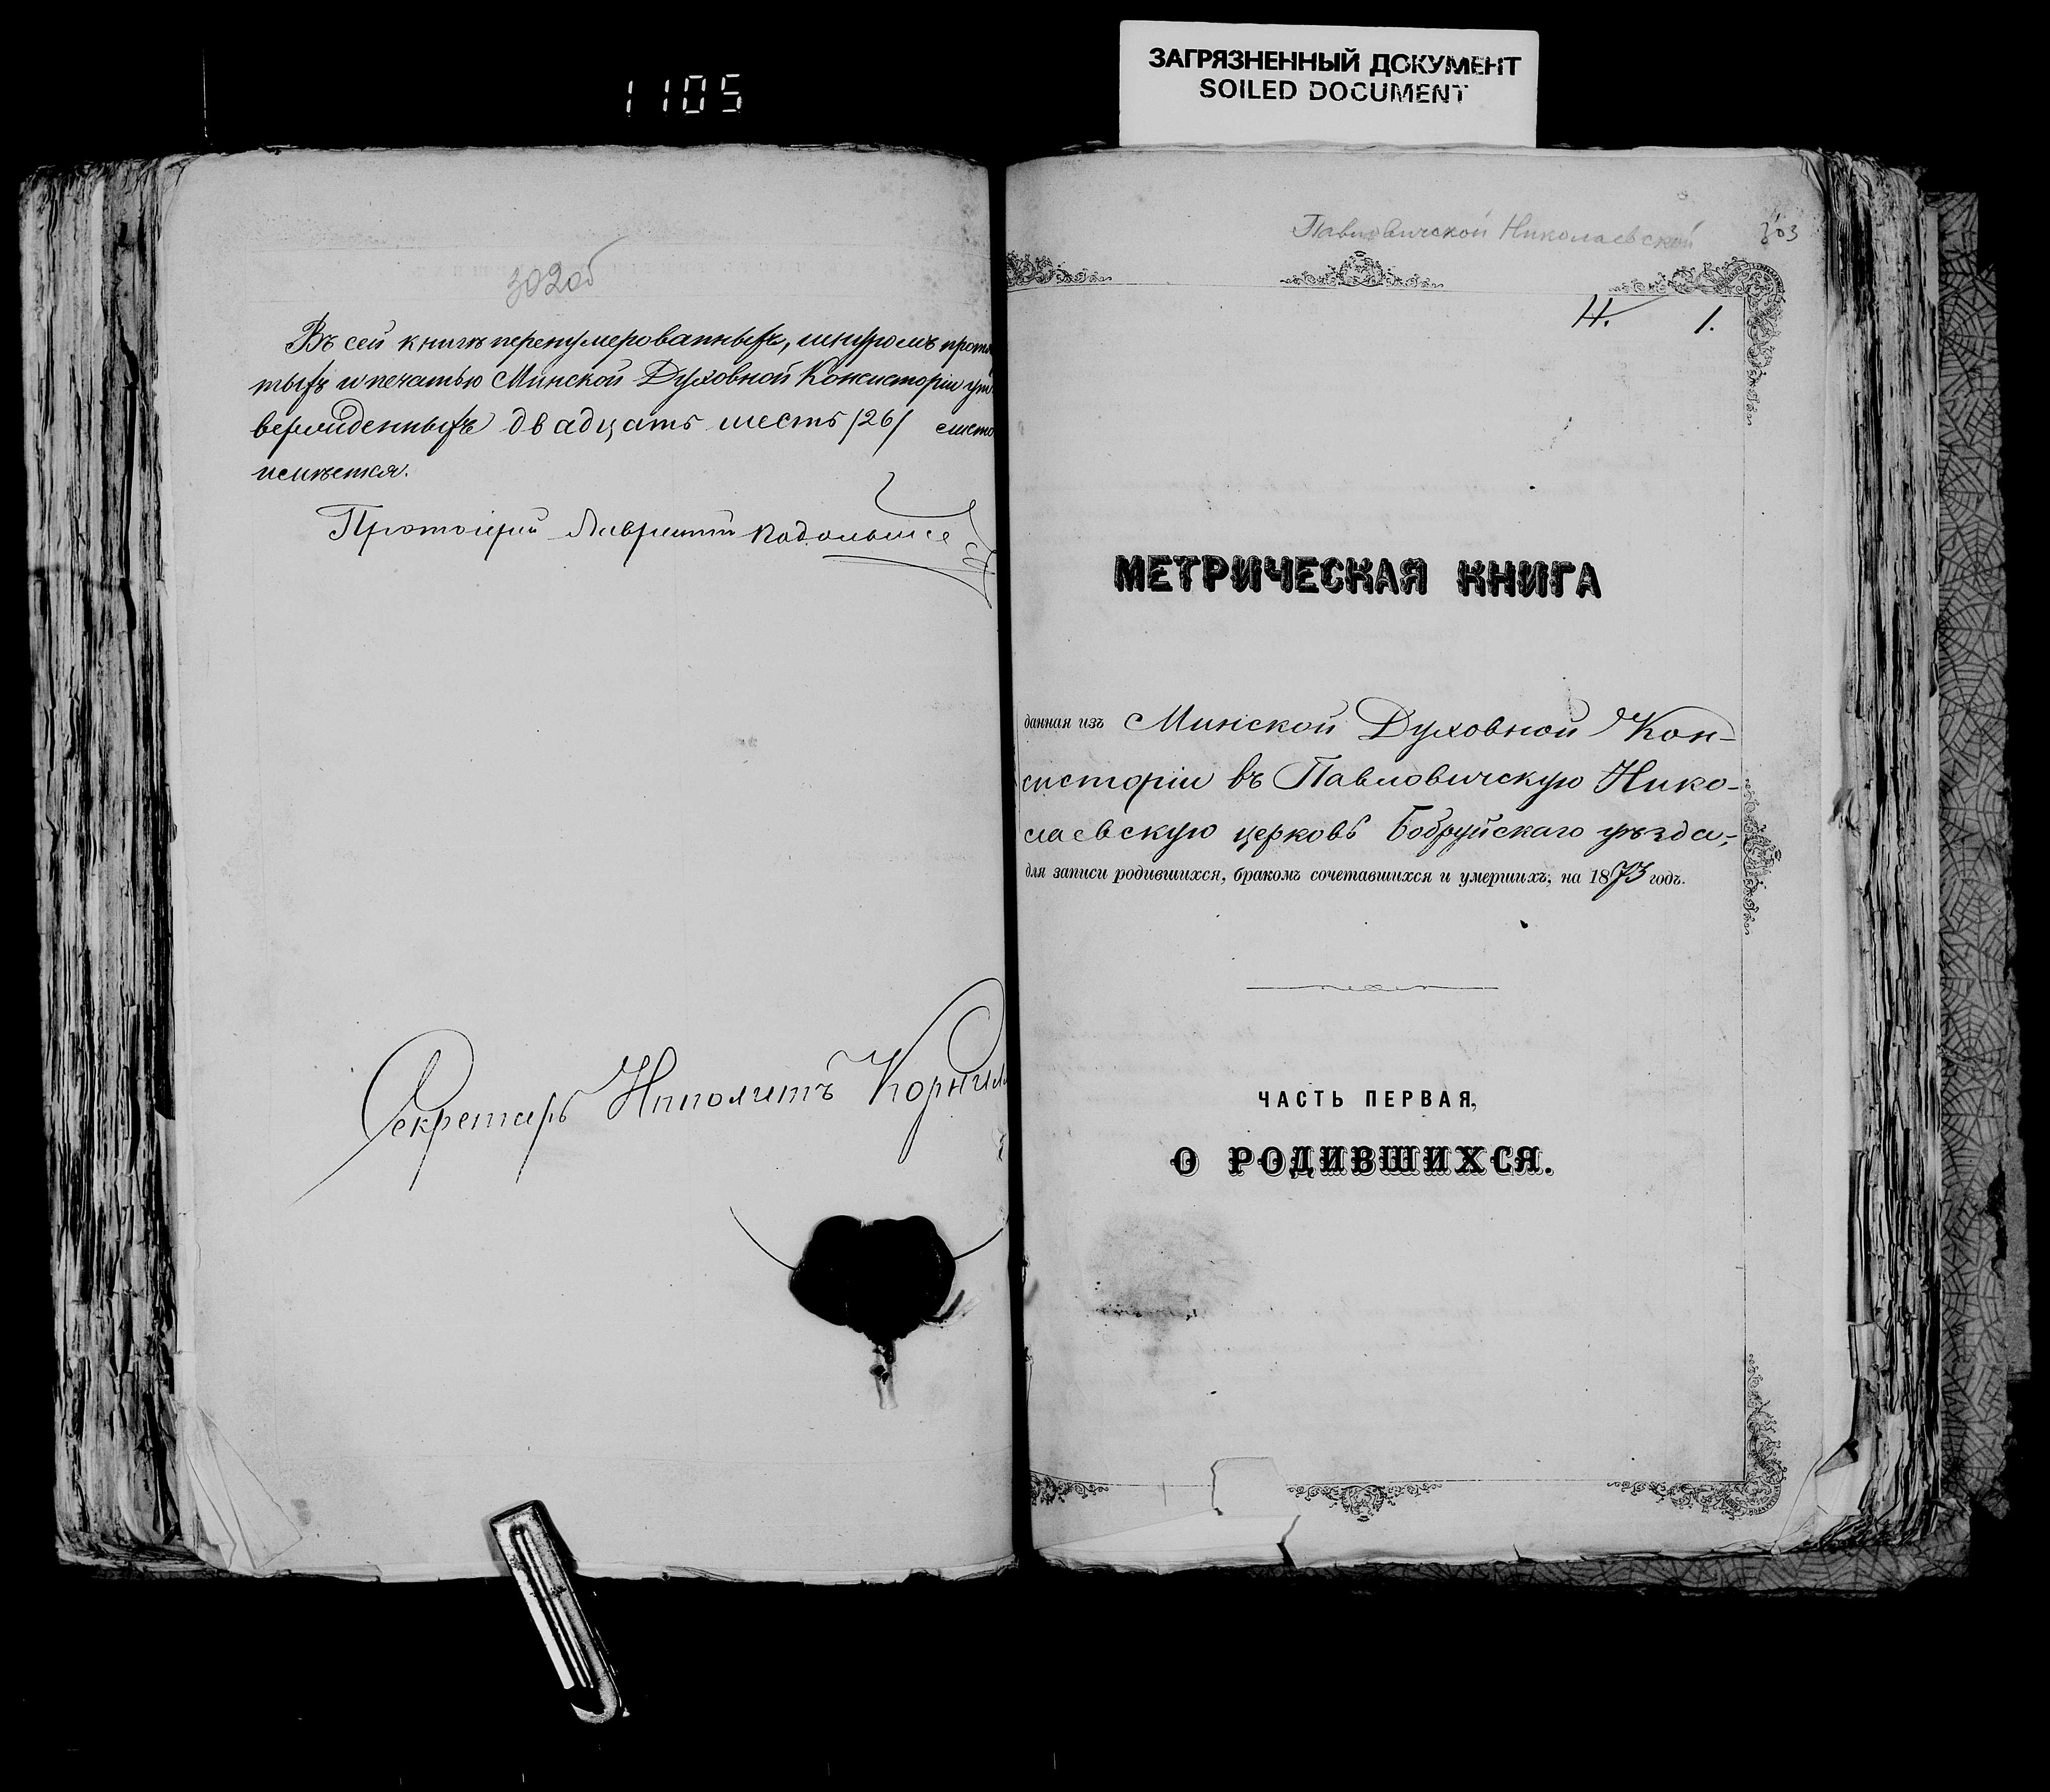 1105
ЗАГРЯЗНЕННЫЙ ДОКУМЕНТ
SOILED DOCUMENT
302об
Въ сей книгѣ перенумерованныхъ, шнуромъ протя
тыхъ и печатью Минской Духовной Консисторіи ут
вержденныхъ двадцать шесть /26/ листо
имѣется.
Протоіерей Лаврентій
Секретарь Ипполитъ
Павловичской Николаевской 303
1.
МЕТРИЧЕСКАЯ КНИГА
данная изъ Минской Духовной Кон-
систоріи въ Павловичскую Нико-
лаевскую церковь Бобруйскаго уѣзда,
для записи родившихся, бракомъ сочетавшихся и умершихъ, на 1873 годъ.
ЧАСТЬ ПЕРВАЯ,
О РОДИВШИХСЯ.